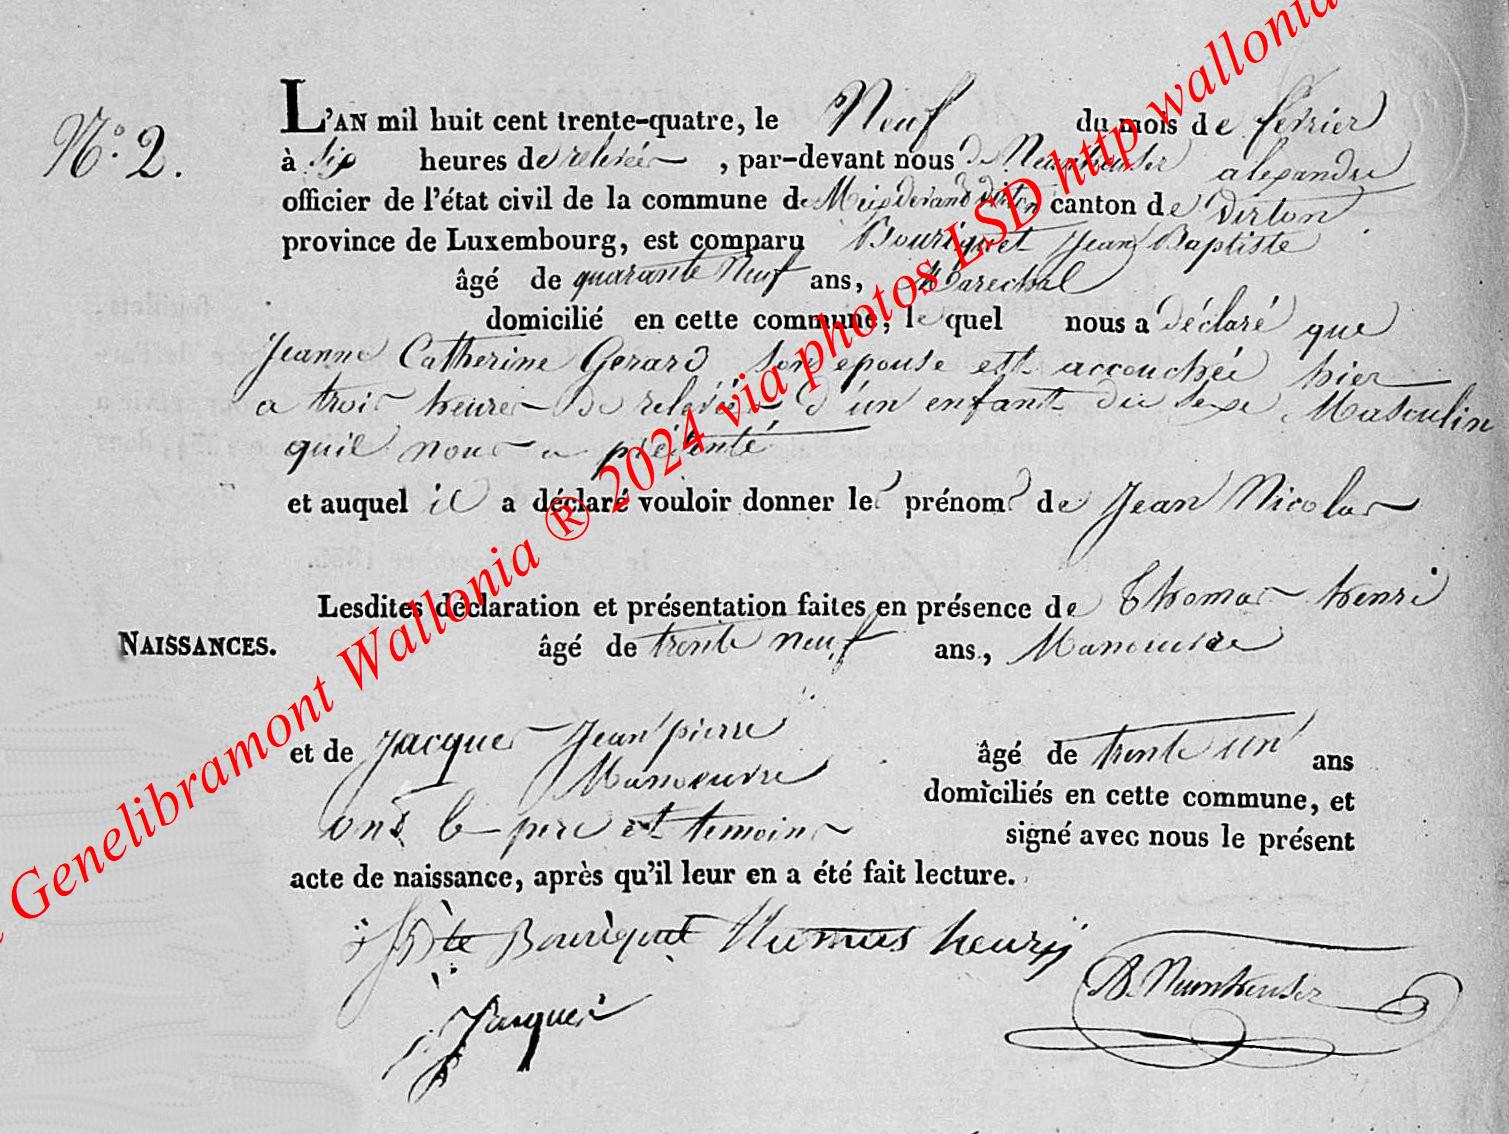 N.° 2.
L'AN mil huit cent trente-quatre, le Neuf du mois de février
à six heures de relevée, par-devant nous de Numkeuser alexandre
officier de l'état civil de la commune de Meix devand virton canton de virton
province de Luxembourg, est comparu Bouriquet Jean Baptiste
âgé de quarante neuf ans, Marechal
domicilié en cette commune, le quel nous a déclaré que
Jeanne Catherine Gerard son epouse est accouchée hier
a trois heures de relevée d'un enfant du sexe Masculin
quil nous a présenté
et auquel il a déclaré vouloir donner les prénoms de Jean Nicolas
Lesdites déclaration et présentation faites en présence de Thomas henri
NAISSANCES. âgé de trente neuf ans, Manouvre
et de Jacques Jean pierre âgé de trente un ans
Manoeuvre domiciliés en cette commune, et
ons le pere et temoins signé avec nous le présent
acte de naissance, après qu'il leur en a été fait lecture.
JBte Bouriquet thumas henry
Numkeuser
Jacques
Genelibramont Wallonia ® 2024 via photos LSD http wallonia